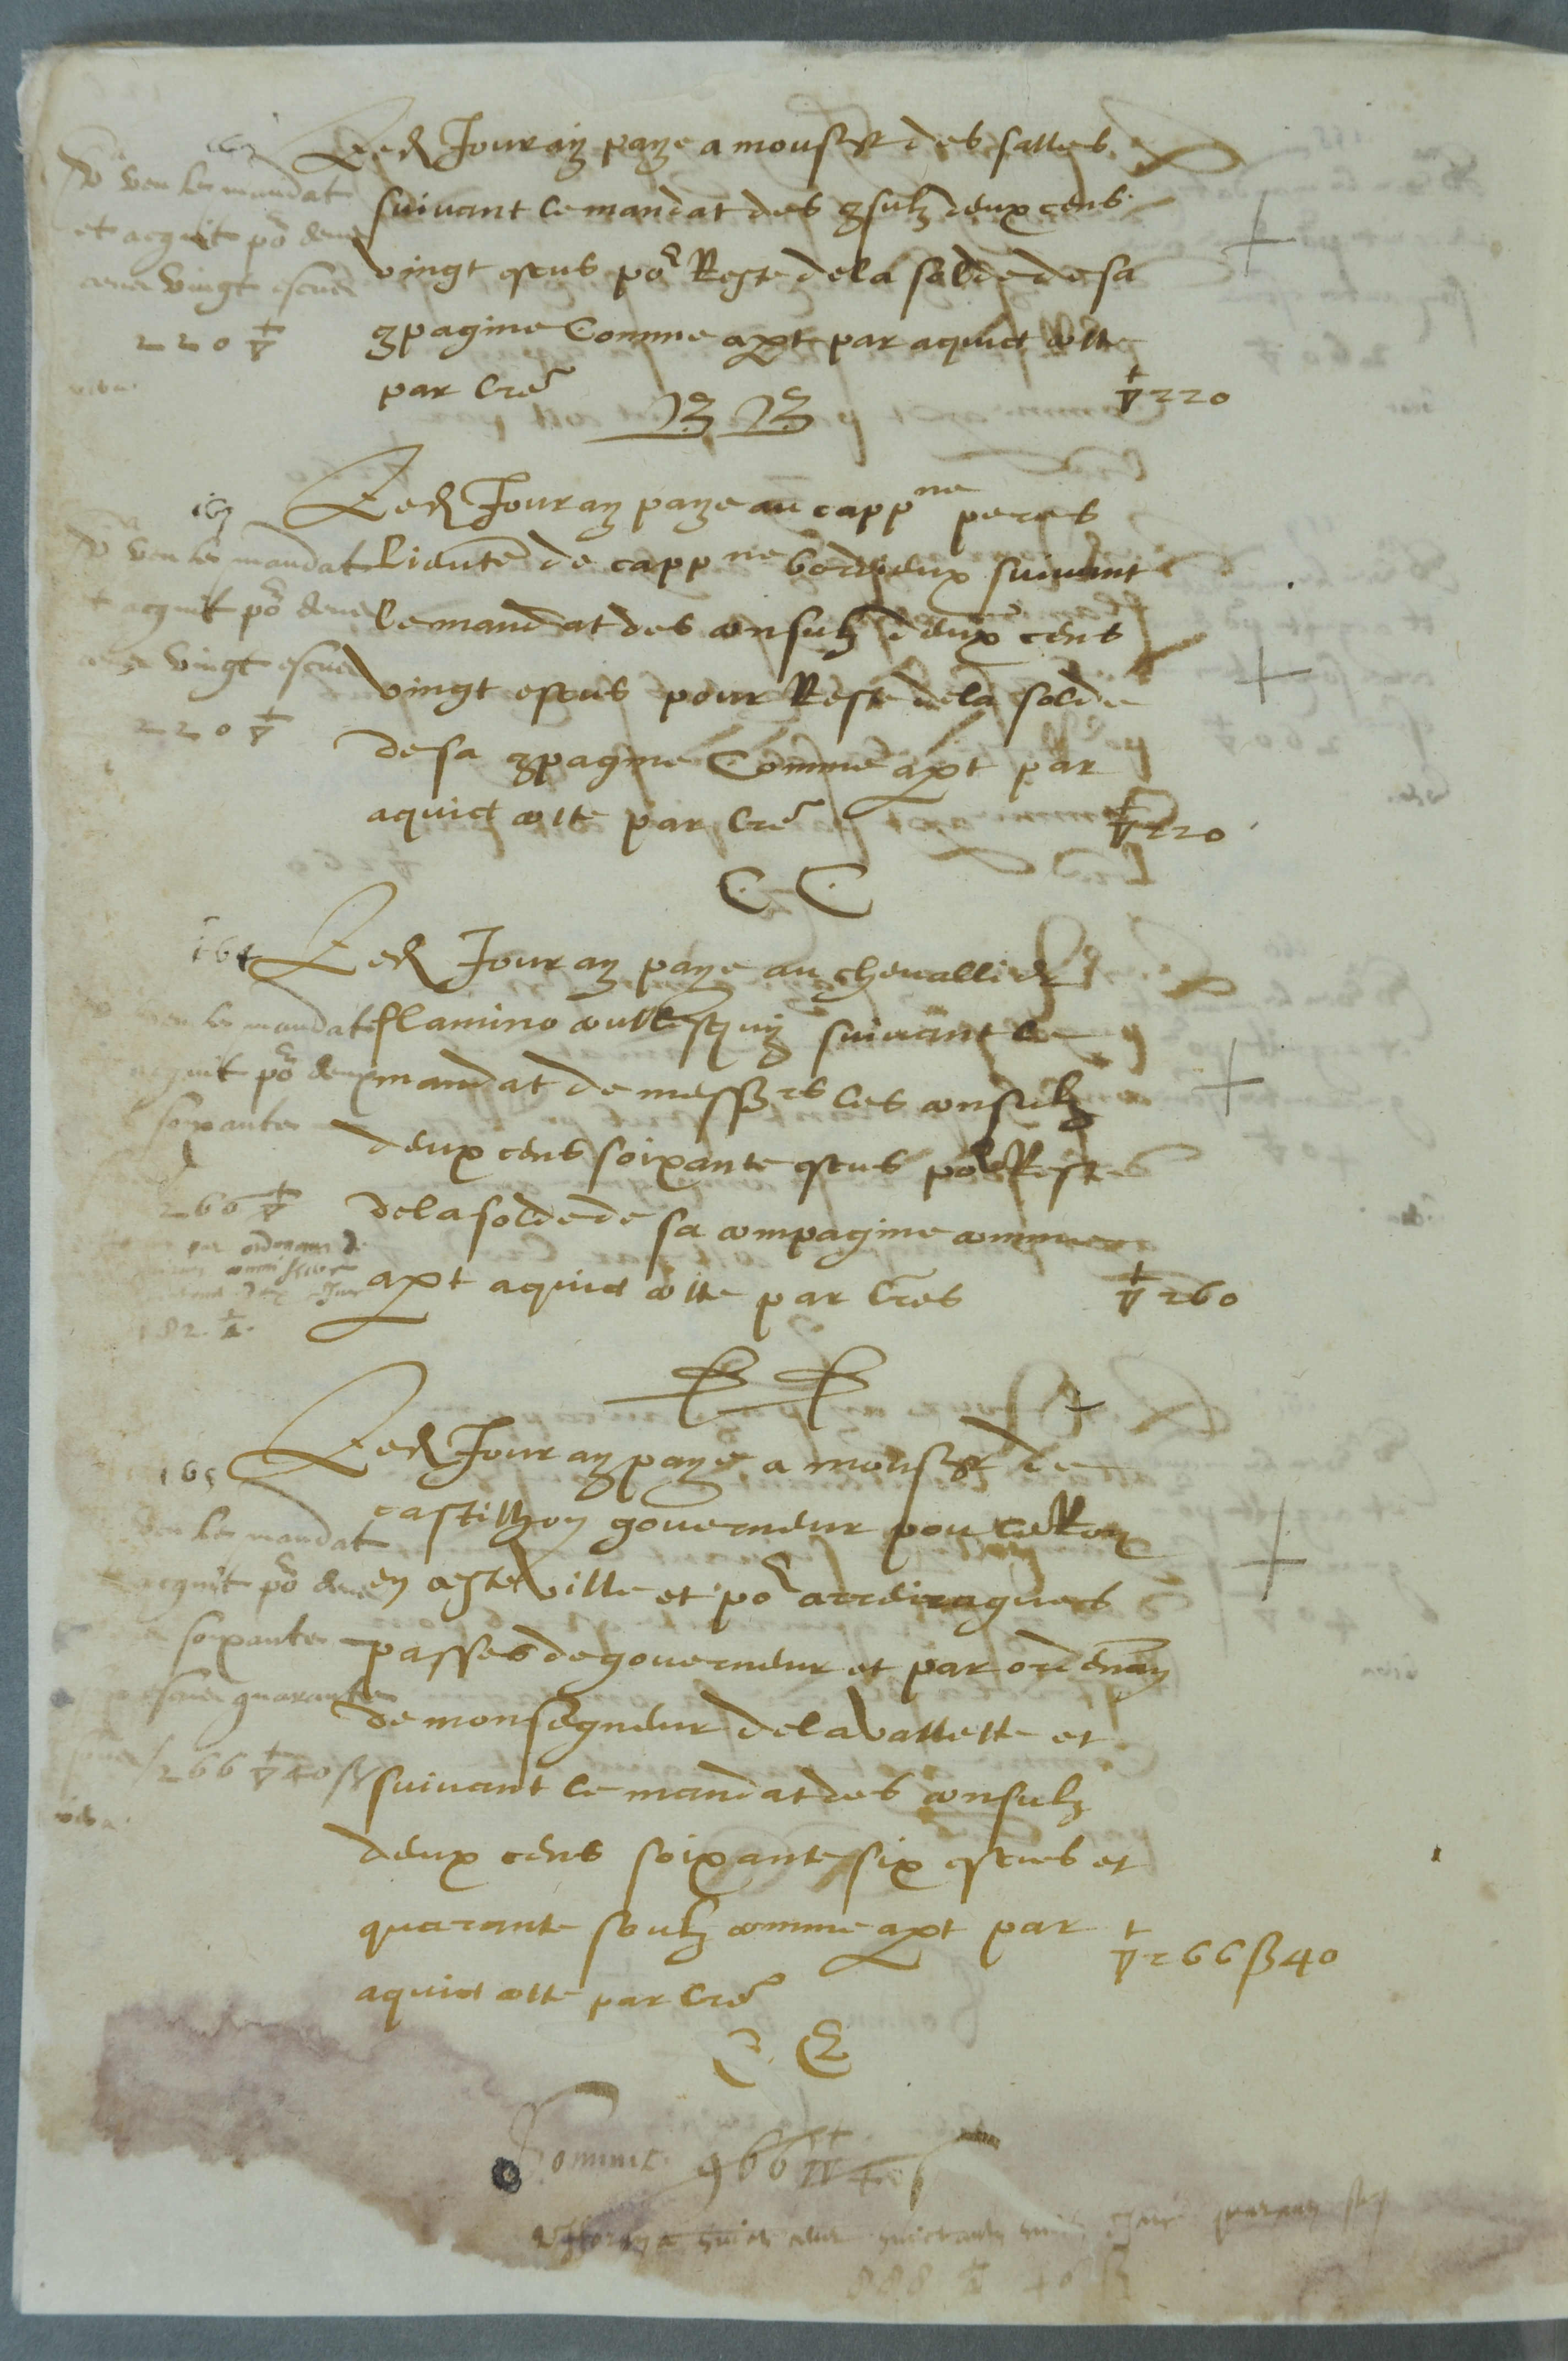 Led Jour ay paye a monsr des salles
suivant le mandat des 9sulz deux cens
vingt escus por Reste de la solde de sa
9pagine Comme apt par aquict cotte
par lre
BB
220
veu le mandat
et acquit por deux
cens vingt escus
220
Led Jour ay paye au cappne peres
lieute de cappne bordeux suivant
le mandat des consulz deux cens
vingt escus pour Reste de la solde
de sa 9pagine Comme apt par
aquict cotte par lre
220
CC
veu le mandat
acquit por deux
cens vingt escus
220
164
Led Jour ay paye au chevallier
flamino suivant le
mandat de messrs les consulz
deux cens soixante escus por Reste
de la solde de sa compagine comme
apt aquict cotte par lres
260
veu le mandat
acquit por deux
soixante
260
par ordonnance de
182
165
Led Jour ay paye a monsr de
castilhon gouverneur pou le Roy
en ceste ville et por arreiragues
passes de gouverneur et par ordenan
de monsegneur de la vallette et
suivant le mandat des consulz
deux cens soixante six escus et
quarante soulz comme apt par
aquict cotte par lre
266 ß 40
veu le mandat
acquit por deux
soixante
escus quarante
266 40 ß
E E
Somme 966 40
888 40 ß